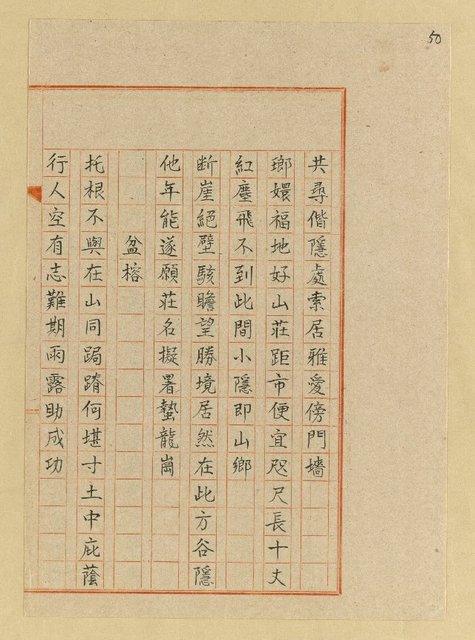 50
共尋偕隱處索居雅愛傍門墻
瑯嬛福地好山莊距市便宜咫尺長十丈
紅塵飛不到此間小隱即山鄉
断崖絕壁駭瞻望勝境居然在此方谷隱
他年能遂願莊名擬署蟄龍崗
盆榕
托根不與在山同跼蹐何堪寸土中庇蔭
行人空有志難期雨露助成功